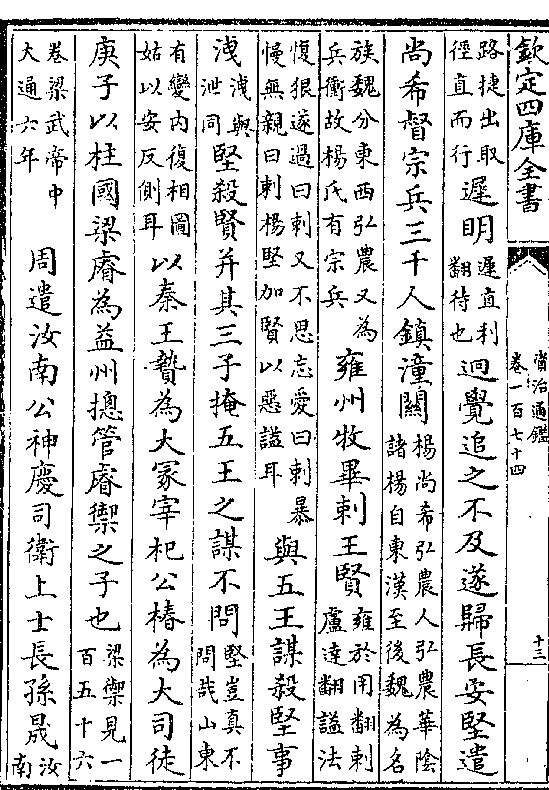 欽定四庫全書
資治通鑑
卷一百七十四
十三
路捷出取
徑直而行
遲明
遲直利
翻待也
迥覺追之不及遂歸長安堅遣
尚希督宗兵三千人鎮潼關
楊尚希弘農人弘農華陰
諸楊自東漢至後魏為名
族魏分東西弘農又為
兵衝故楊氏有宗兵
雍州牧畢剌王賢
雍於用翻剌
盧達翻諡法
愎狠遂過曰剌又不思忘愛曰剌暴
慢無親曰剌楊堅加賢以惡諡耳
與五王謀殺堅事
洩
洩與
泄同
堅殺賢并其三子掩五王之謀不問
堅豈真不
問哉山東
有變内復相圖
姑以安反側耳
以秦王贄為大冢宰杞公椿為大司徒
庚子以柱國梁睿為益州摠管睿禦之子也
梁禦見一
百五十六
卷梁武帝中
大通六年
周遣汝南公神慶司衛上士長孫晟
汝
南